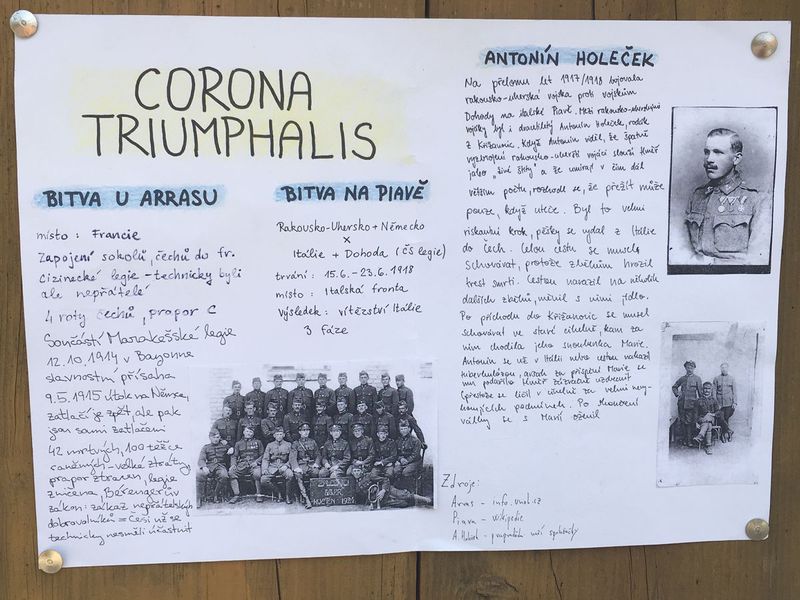 CORONA
TRIUMPHALIS
BITVA U ARRASU
místo : Francie
Zapojení sokolů, čechů do fr.
cizinecké legie - technicky byli
ale nepřátelé
4 roty čechů, prapor C
Součástí Marakešské legie
12.10.1914 v Bayonne
slavnostní přísaha
9.5.1915 útok na Němce,
zatlačí je zpět, ale pak
jsou sami zatlačeni
42 mrtvých, 100 těžce
raněných - velké ztráty,
prapor ztracen, legie
zničena, Bérengerův
zákon: zákaz nepřátelských
dobrovolníků = Češi už se
technicky nesměli účastnit
BITVA NA PIAVĚ
Rakousko-Uhersko + Německo
×
Itálie + Dohoda (ČS legie)
trvání : 15.6. - 23.6. 1918
místo : Italská fronta
výsledek : vítězství Itálie
3 fáze
ANTONÍN HOLEČEK
Na přelomu let 1917/1918 bojovala
rakousko-uherská vojska proti vojskům
Dohody na italské Piavě. Mezi rakousko-uherskými
vojáky byl i dvacetiletý Antonín Holeček, rodák
z Křižanovic. Když Antonín viděl, že špatně
vyzbrojení rakousko-uherští vojáci slouží téměř
jako „živé štíty" a že umírají v čím dál
větším počtu, rozhodl se, že přežít může
pouze, když uteče. Byl to velmi
riskantní krok, pěšky se vydal z Itálie
do Čech. Celou cestu se musel
schovávat, protože zběhům hrozil
trest smrti. Cestou narazil na několik
dalších zběhů, měnil s nimi jídlo.
Po příchodu do Křižanovic se musel
schovávat ve staré cihelně, kam za
ním chodila jeho snoubenka Marie.
Antonín se už v Itálii nebo cestou nakazil
tuberkulózou, avšak za přispění Marie se
mu podařilo téměř zázračně uzdravit
(přestože se léčil v cihelně za velmi nevy-
hovujících podmínek. Po skončení
války se s Marií oženil
Zdroje:
Arras - info.
Piava - Wikipedie
A. Holeček -